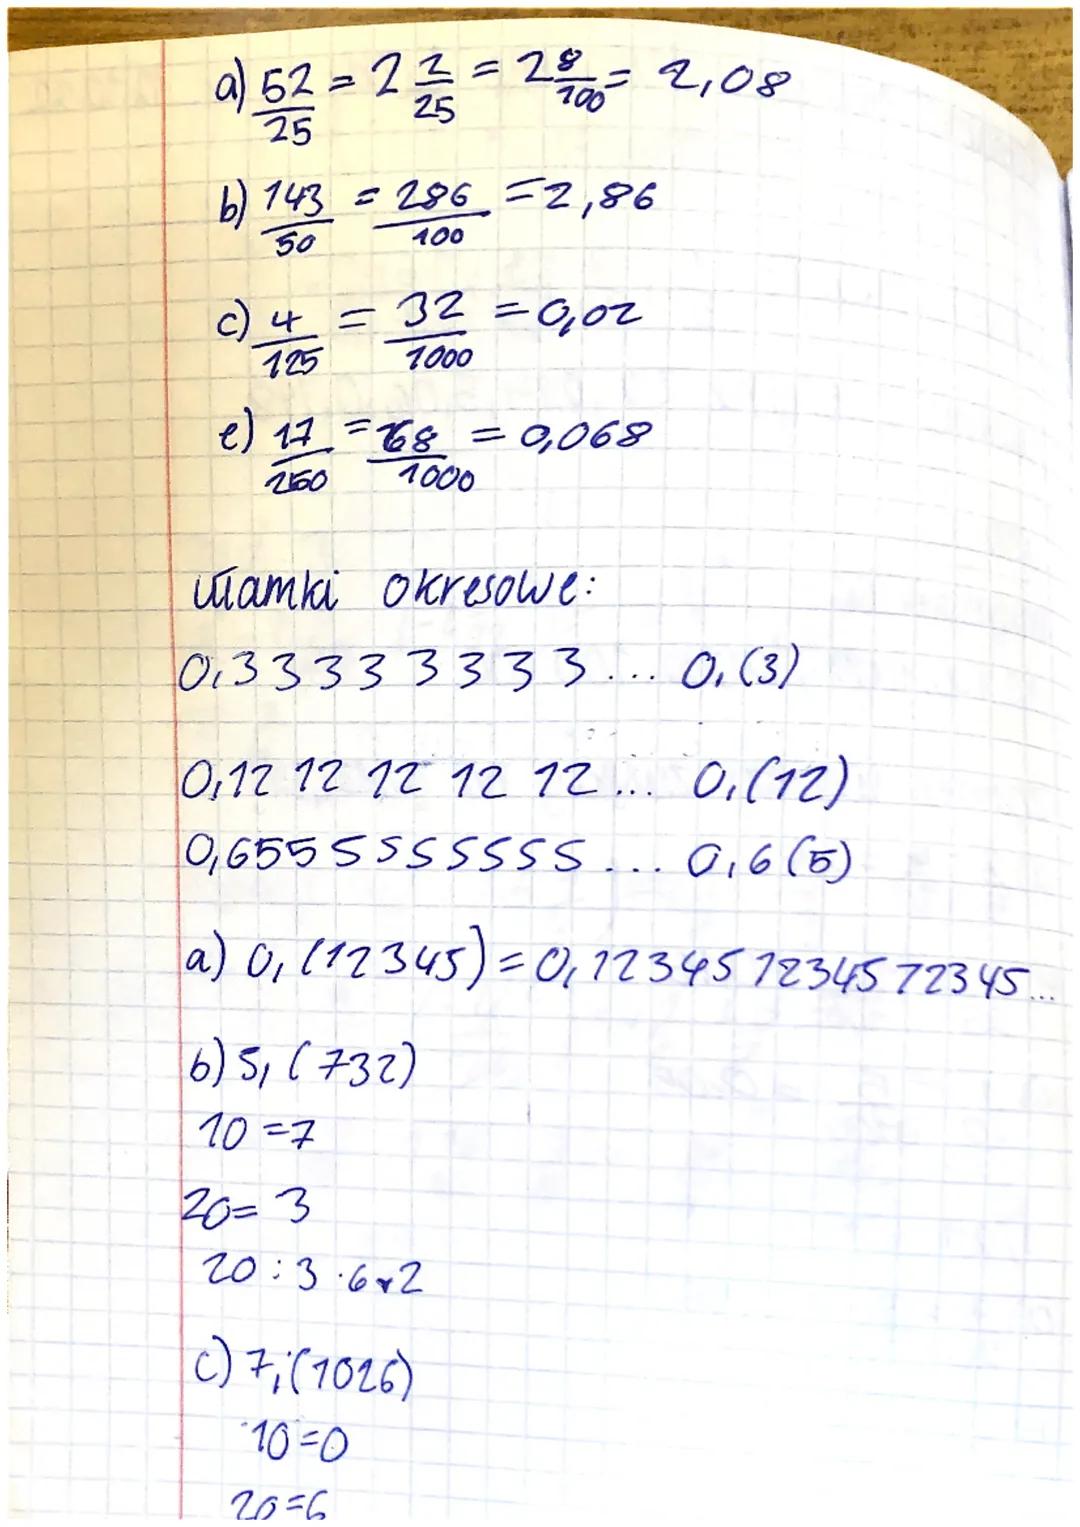 a) 52/25 = 2 2/25 = 2 8/100 = 2,08
b) 143/50 = 286/100 = 2,86
c) 4/125 = 32/1000 = 0,02
e) 17/250 = 68/1000 = 0,068
ułamki okresowe:
0,33333333... 0,(3)
0,12 12 12 12 12... 0,(12)
0,6555555555... 0,6(5)
a) 0,(12345) = 0,123451234512345...
b) 5,(732)
10=7
20=3
20:3·6+2
c) 7,(1026)
10=0
20=6